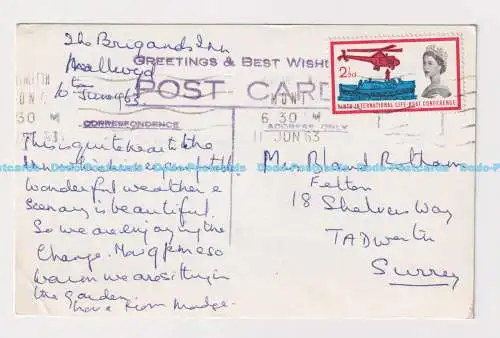 The Brigands Inn
Mallwyd
10th June 63.
GREETINGS & BEST WISH
POST CARD
CORRESPONDENCE
ADDRESS ONLY
2½d
NINTH INTERNATIONAL LIFE-BOAT CONFERENCE
JUN
30 M
63
6.30 M
11 JUN 63
This is quite
wonderful weather &
Scenery is beautiful.
So we are enjoying the
Change.
warm we are sitting in
the garden.
love from Madge.
Felton
18 Shelvers Way
TADworth
Surrey